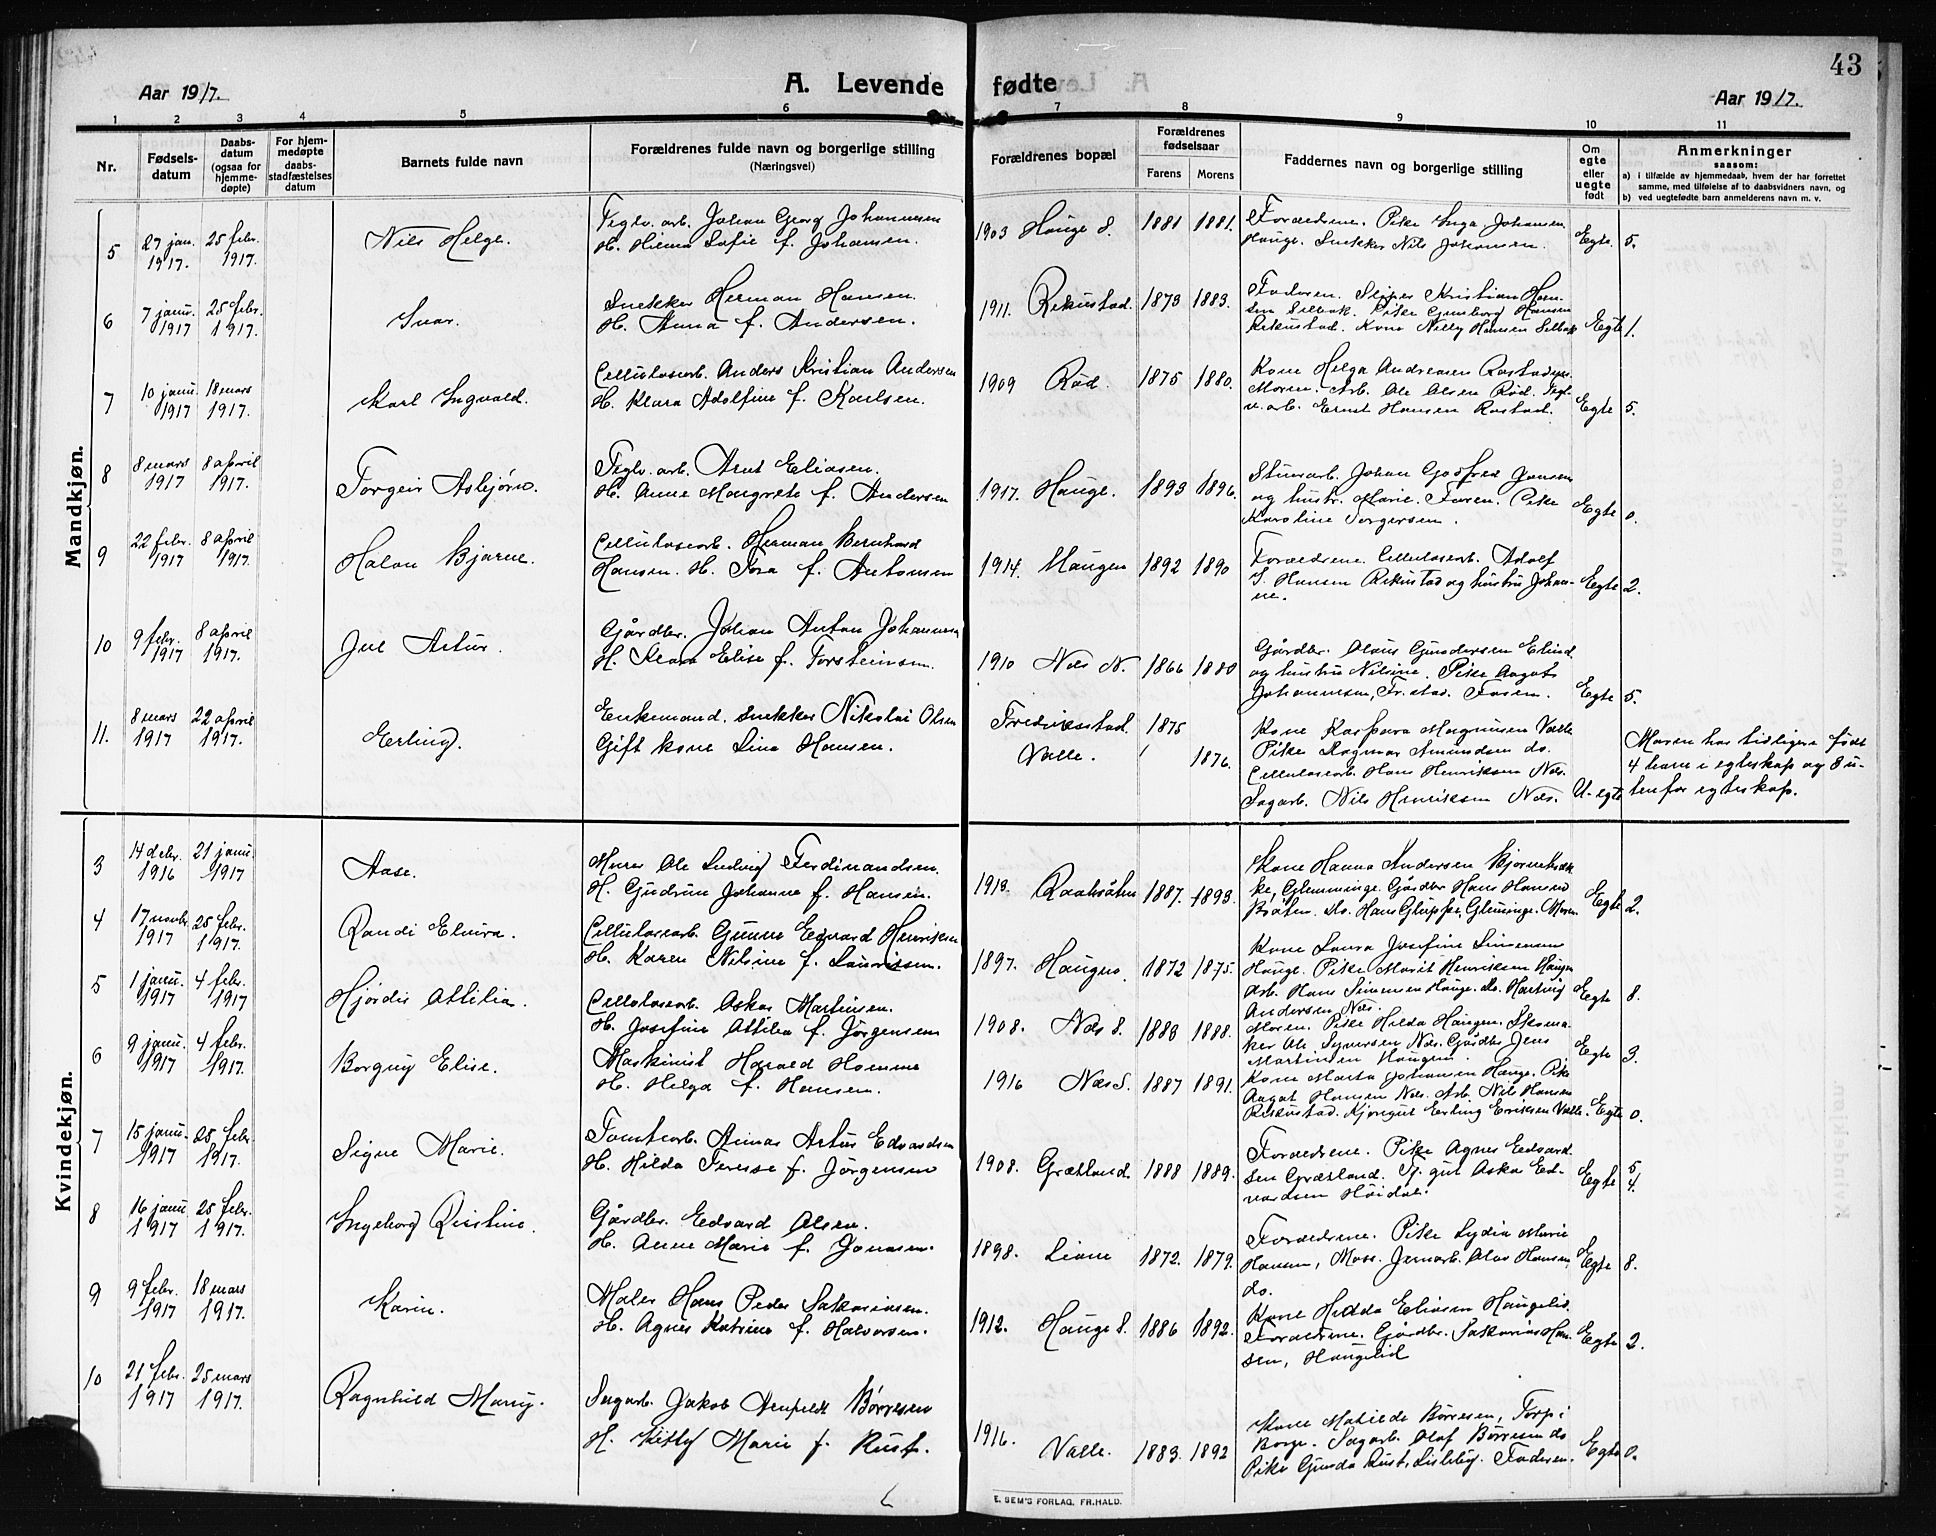 43
Aar 1917.
A. Levende fødte
Aar 1917.
1 2 3 4 5 6 7 8 9 10 11
Nr.
Fødsels-
datum
Daabs-
datum
(ogsaa for
hjemme-
døpte)
For hjem-
medøpte
daabs-
stadfæstelses
datum
Barnets fulde navn
Forældrenes fulde navn og borgerlige stilling
(Næringsvei)
Forældrenes bopæl
Forældrenes
fødselsaar
Farens Morens
Faddernes navn og borgerlige stilling
Om
egte
eller
uegte
født
Anmerkninger
saasom:
a) i tilfælde av hjemmedaab, hvem der har forrettet
samme, med tilføielse af to daabsvidners navn, og
b) ved uegtefødte barn anmelderens navn m. v.
Mandkjøn.
5 27 jan. 1917. 25 febr. 1917. Nils Helge.
Teglv. arb. Johan Georg Johannesen
H. Hilma Sofie f. Johansen.
1903 Hauge S. 1881 1881.
Forældrene. Pike Inga Johansen
Hauge. Snekker Nils Johansen.
Egte. 5.
6 7 janu. 1917 25 febr. 1917. Ivar.
Snekker Herman Hansen.
H. Anna f. Andersen.
1911. Rekustad. 1873 1883.
Faderen. Kristian Han-
sen Selbak. Pike Gunborg Hansen
Rekustad. Kone Nelly Hansen Selbak
Egte 1.
7 10 janu. 1917 18 mars 1917. Karl Ingvald.
Cellulosearb. Anders Kristian Andersen
H. Klara Adolfine f. Karlsen.
1909 Rød. 1875 1880.
Kone Helga Andreasen
Moren. Arb. Ole Olsen Rød. Tegl-
v. arb. Ernst Hansen Rostad.
Egte 5.
8 8 mars 1917 8 april 1917. Torgeir Asbjørn.
Teglv. arb. Arnt Eliasen.
H. Anne Margrete f. Andersen
1917. Hauge. 1893 1896.
Stuerarb. Johan Godfred Jensen
og hustr. Marie. Faren. Pike
Karoline Torgersen.
Egte 0.
9 22 febr. 1917 8 april 1917. Hakon Bjarne.
Cellulosearb. Herman Bernhard
Hansen. H. Tora f. Antonsen
1914. Haugen 1892 1890
Forældrene. Cellulosearb. Adolf
I. Hansen Rekustad og hustru Johan-
ne.
Egte 2.
10 9 febr. 1917 8 april 1917. Jul Artur.
Gårdbr. Johan Anton Johannesen
H. Klara Elise f. Torsteinsen.
1910 Næs N. 1866 1880
Gårdbr. Olaus Gundersen
og hustru Nilsine. Pike Aagot
Johannesen, Fr.stad. Faren.
Egte 5.
11. 8 mars 1917 22 april 1917. Erling.
Enkemand. snekker Nikolai Olsen
Gift kone Lina Hansen.
Fredrikstad. 1875
Valle. 1876.
Kone Kaspara Magnusen Valle
Pike Ragnar Amundsen do.
Cellulosearb. Hans Henriksen Næs.
Sagarb. Nils Henriksen Næs.
U-egte
Moren har tidligere født
4 barn i egteskap og 8 u-
tenfor egteskap.
Kvindekjøn.
3 14 debr. 1916 21 janu. 1917 Aase.
Murer Ole Ludvig Ferdinandsen.
H. Gudrun Johanne f. Hansen.
1913. Raabråten 1887. 1893.
Kone Hanna Andersen Bjørnebæk-
ke, Glemminge. Gårdbr Hans Hansen
Bråten. do. Hans Gluppe, Glemminge. Moren
Egte 2.
4 17 novbr. 1917 25 febr. 1917. Randi Elvira.
Cellulosearb. Gunnar Edvard Henriksen
H. Karen Nilsine f. Lauritsen.
1897. Haugen. 1872 1875.
Kone Laura Josefine Simensen
Hauge. Pike Marit Henriksen Haugen
Arb. Hans Simensen Hauge. do. Hartvig
Andersen Næs.
Egte 8.
5 1 janu. 1917 4 febr. 1917 Hjørdis Attilia.
Cellulosearb. Oskar Martinsen.
H. Josefine Attilia f. Jørgensen
1908. Næs S. 1883 1888.
Moren. Pike Hilda Haugen. Skoma-
ker Ole Syversen Næs. Gårdbr Jens
Martinsen Haugen.
Egte 3.
6 9 janu. 1917 4 febr. 1917. Borgny Elise.
Maskinist Harald Homme
H. Helga f. Hansen.
1916 Næs S. 1887 1891.
Kone Marta Johansen Hauge. Pike
Aagot Hansen Næs. Arb. Nils Hansen
Rekustad. Kjøregut Erling Eriksen Valle.
Egte 0.
7 15 janu. 1917 25 febr. 1917. Signe Marie.
Tomtearb. Artur Edvardsen
H. Hilda Terese f. Jørgensen
1908. Grætland. 1888 1889.
Forældrene. Pike Agnes Edvard-
sen Grætland. Tj. gut Aska Ed-
vardsen Høidal.
Egte 5 4.
8 16 janu 1917 25 febr. 1917. Ingeborg Kristine.
Gårdbr. Edvard Olsen.
H. Anne Marie f. Jonasen.
1898. Liane 1872. 1879.
Forældrene. Pike Lydia Marie
Hansen, Moss. Jernarb. Olav Hansen
do.
Egte 8.
9 9 febr. 1917 18 mars 1917. Karin.
Maler Hans Peder Sakariasen.
H. Agnes Katrine f. Halvorsen.
1912. Hauge S. 1886 1892.
Kone Hedda Eliasen Haugelid.
Forældrene. Gårdbr. Sakarias Han-
sen, Haugelid
Egte 2.
10 21 febr. 1917 25 mars 1917. Ragnhild Mary.
Sagarb. Jakob Arnfeldt Børresen
H. Kitty Marie f. Rust.
1916. Valle. 1883. 1892
Kone Matilde Børresen, Torp i
Borge. Sagarb. Olaf Børresen do
Pike Gunda Rust, Lisleby. Faderen.
Egte 0.
E. SEM'S FORLAG, FR.HALD.